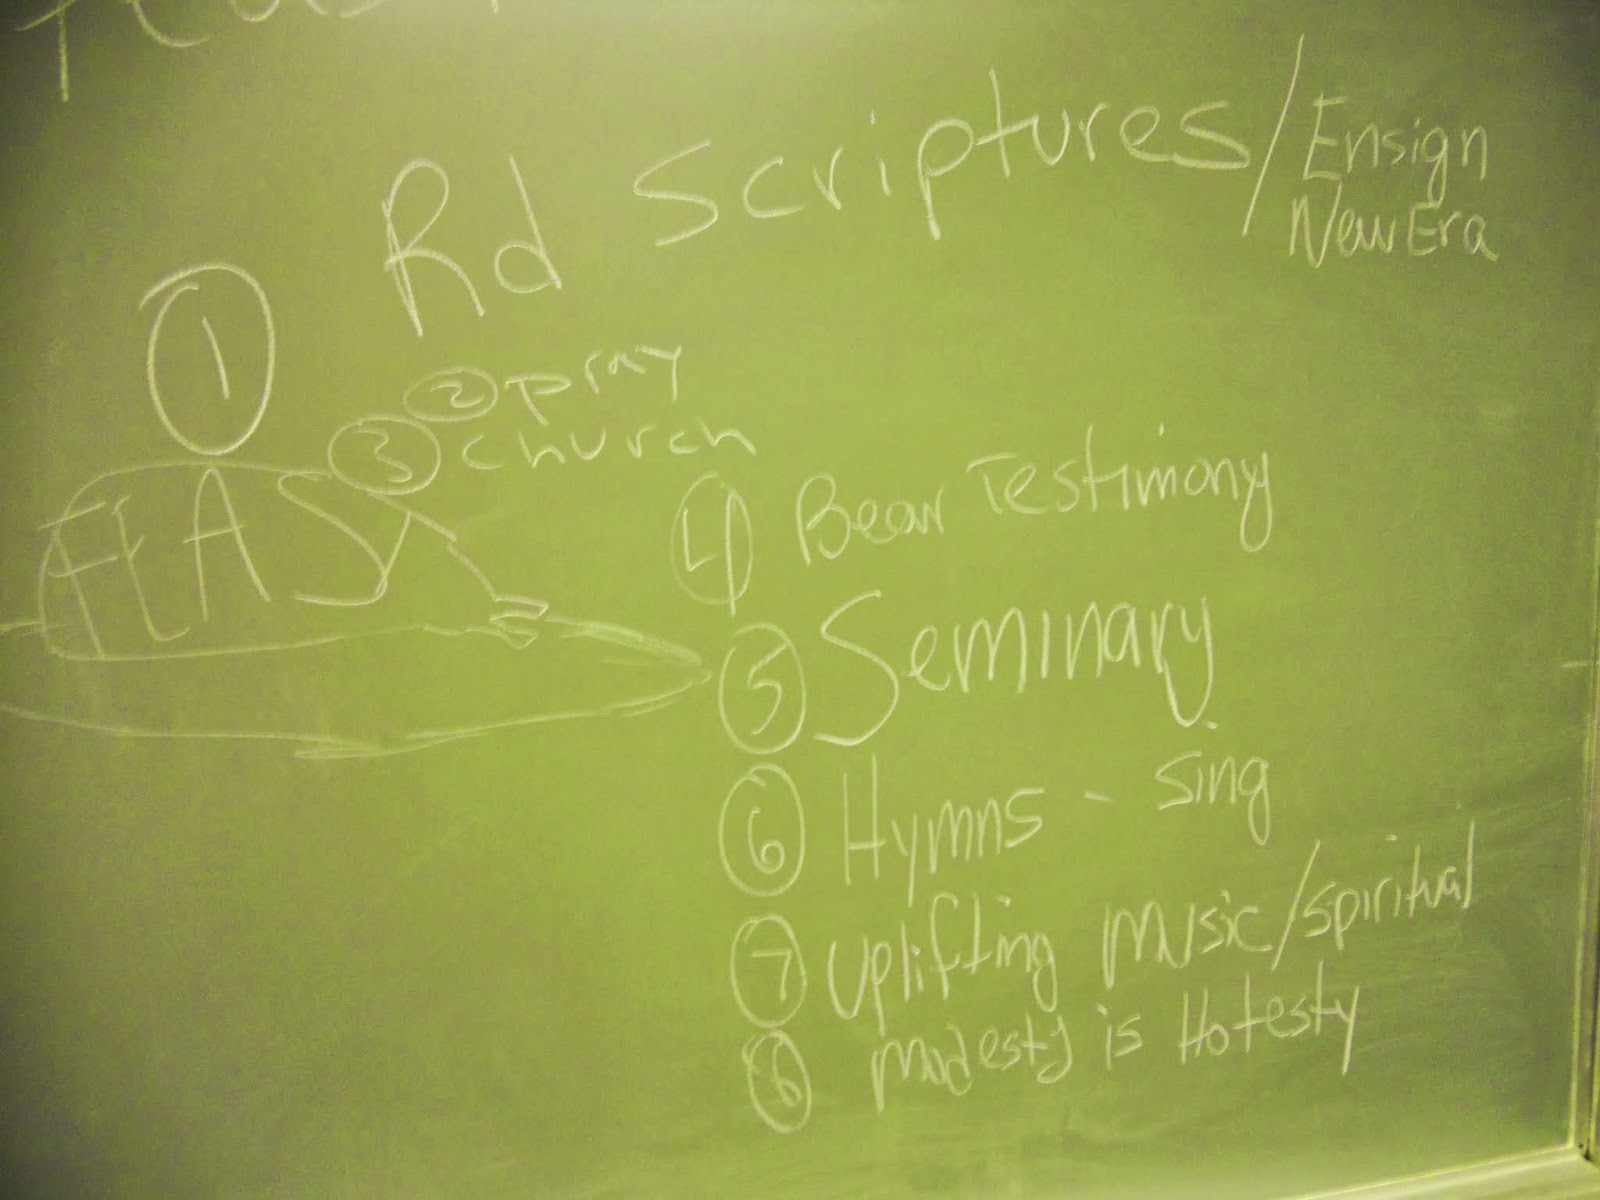 ① Rd Scriptures/Ensign
New Era
② pray
③ church
FEAST
④ Bear Testimony
⑤ Seminary
⑥ Hymns - sing
⑦ Uplifting music/spiritual
⑧ modesty is Hotesty